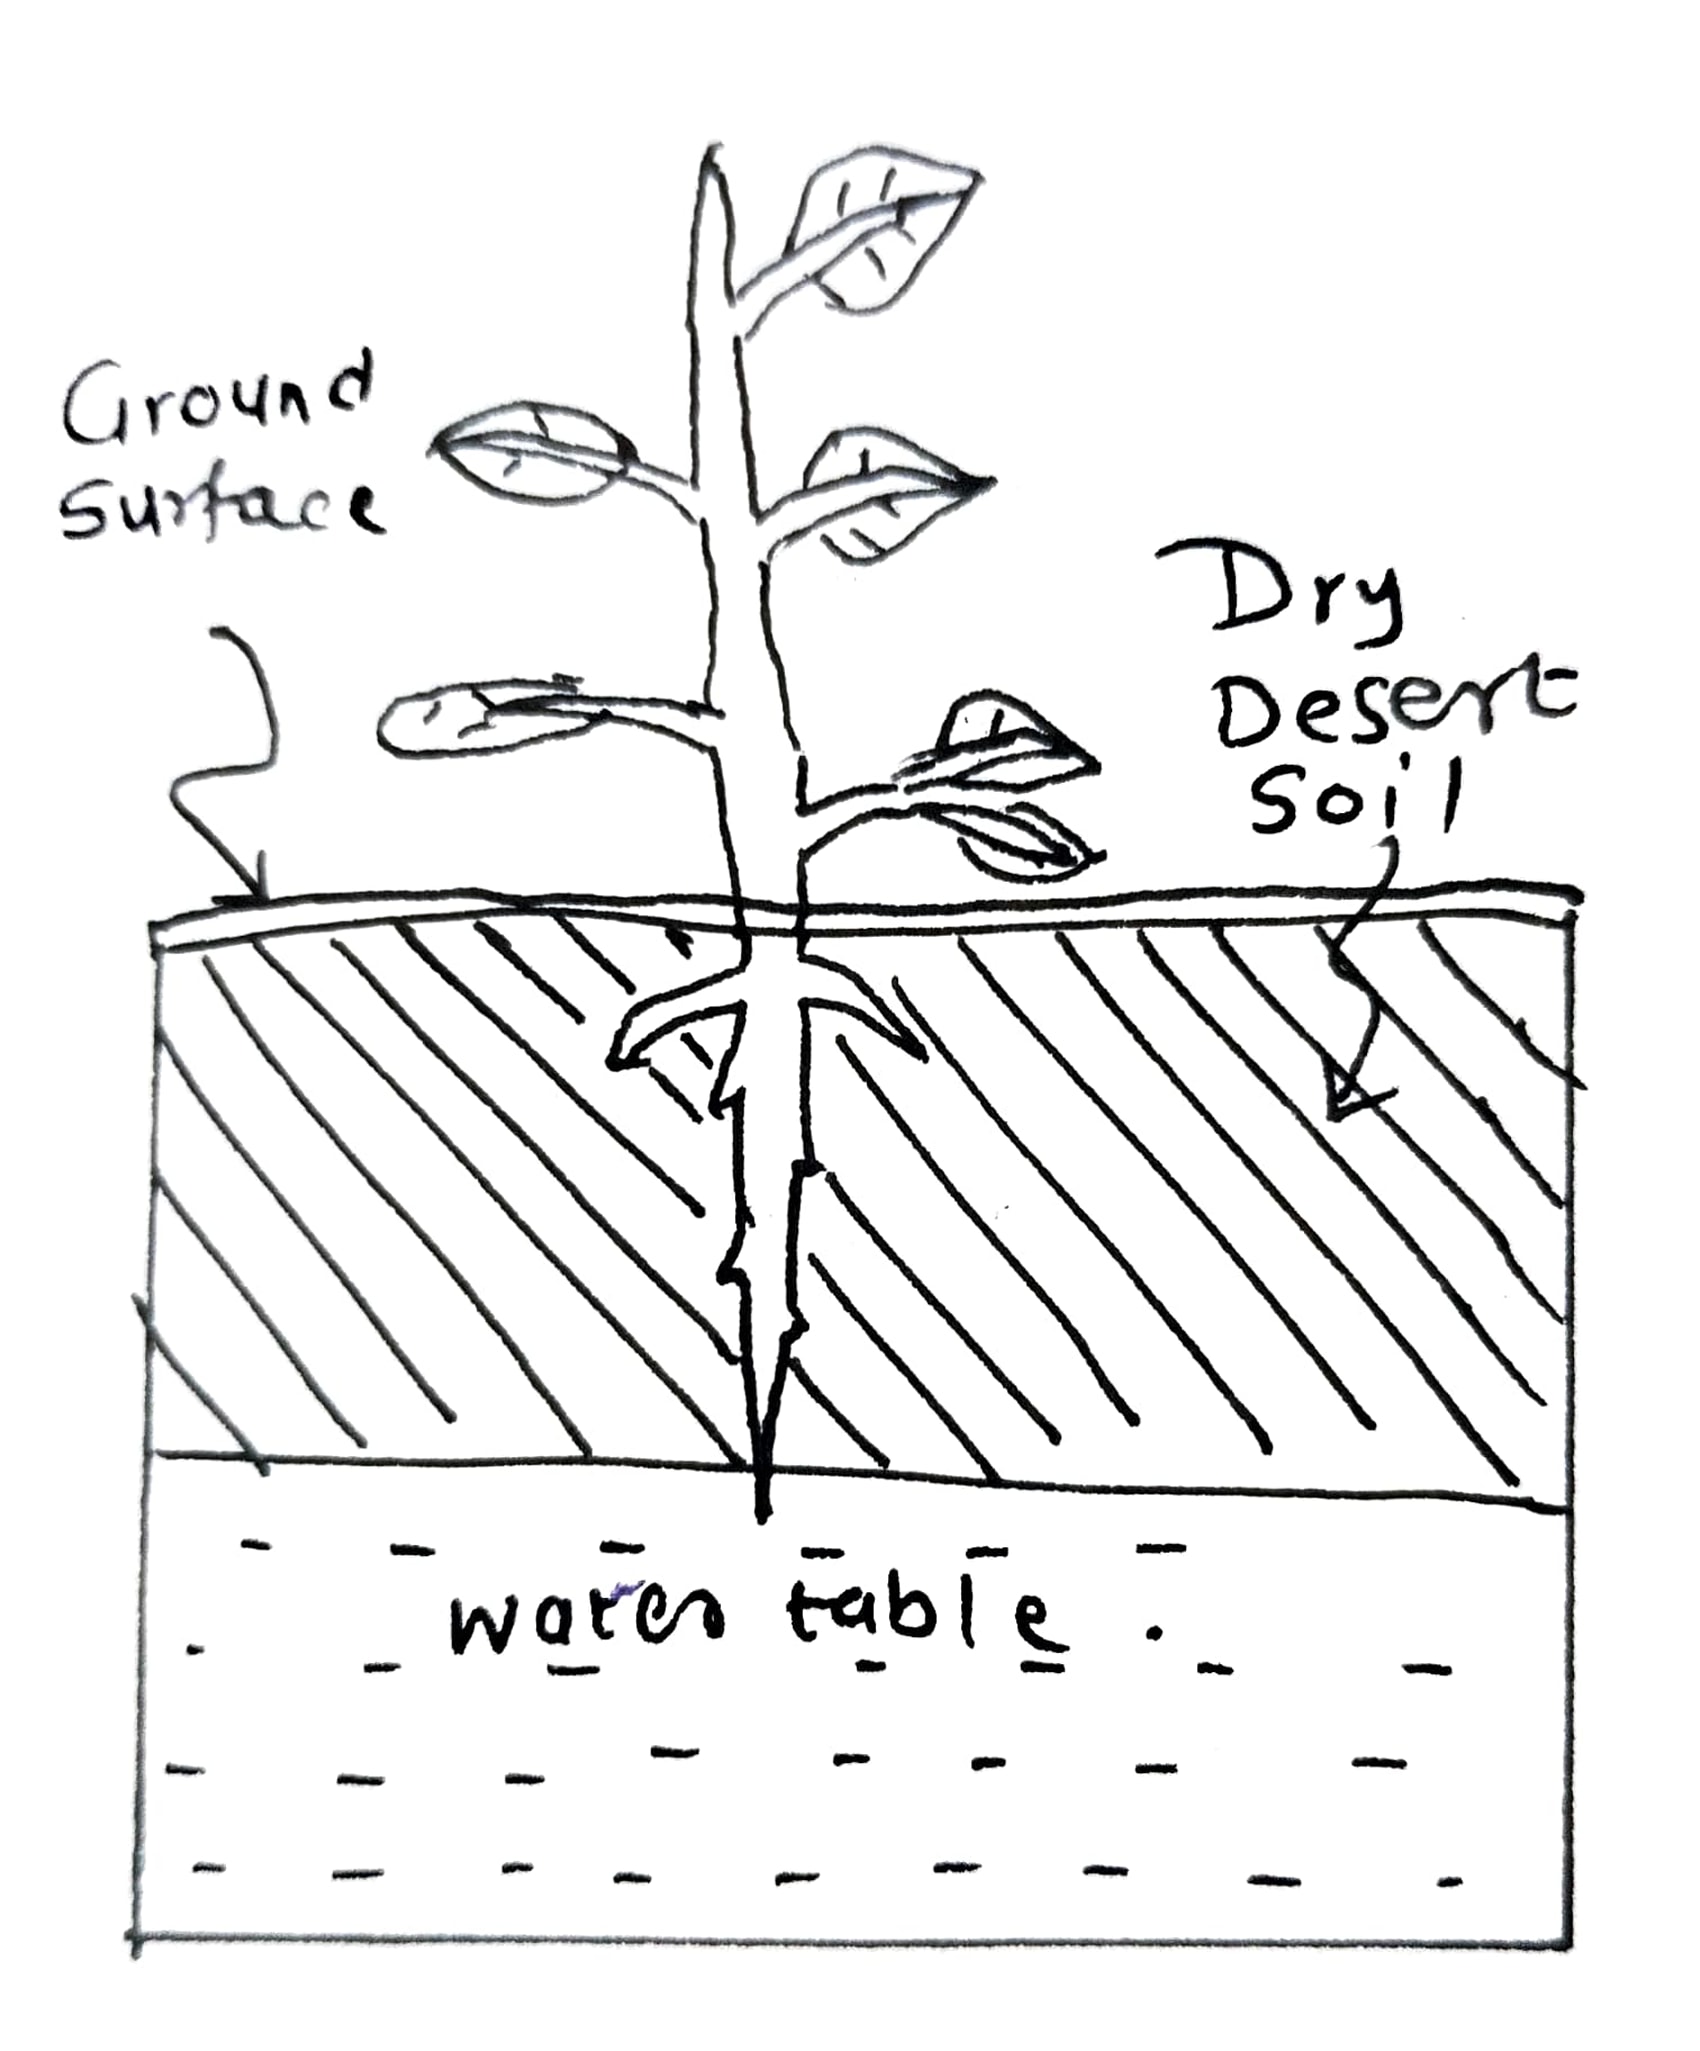 Ground
surface
Dry
Desert
Soil
water table.